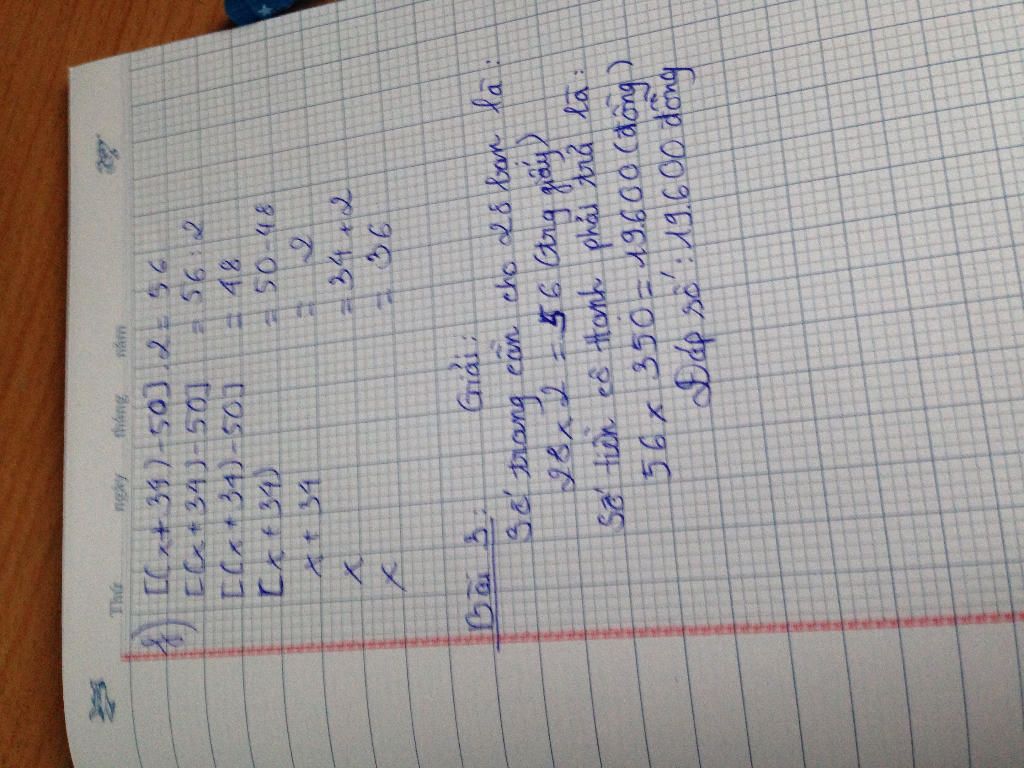 Thứ ngày tháng năm
b) [(x + 34) - 50] . 2 = 56
[(x + 34) - 50] = 56 : 2
[(x + 34) - 50] = 48
[x + 34) = 50 - 48
x + 34 = 2
x = 34 + 2
x = 36
Bài 3: Giải:
Số trang cần cho 28 bạn là:
28 x 2 = 56 (trg giấy)
Số tiền cô Hạnh phải trả là:
56 x 350 = 19.600 (đồng)
Đáp số: 19.600 đồng